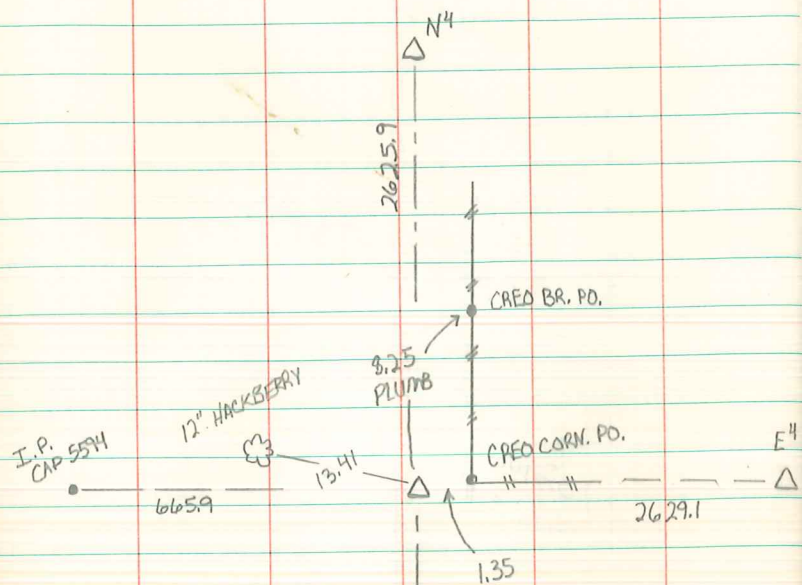 N4
2625.9
CREO BR. PO.
8.25
PLUMB
12" HACKBERRY
I.P.
CAP 5594
13.41
CREO CORN. PO.
E4
665.9
2629.1
1.35